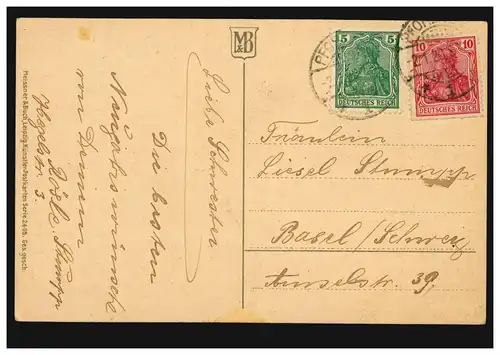 M&B
Meissner & Buch, Leipzig Künstler-Postkarten Serie 2446. Ges. gesch.
Liebe Schwester
Die besten
Neujahrswünsche
von Deinem
Rösle Stumpp
Hegelstr. 3.
5
5
DEUTSCHES REICH
10
10
DEUTSCHES REICH
Fräulein
Liesel Stumpp
Basel/Schweiz
Amselstr. 39.